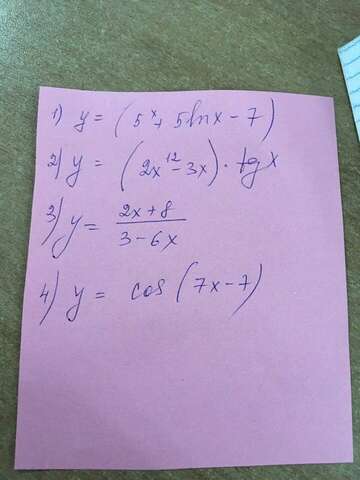 1) y = (5ˣ + 5lnx - 7)
2) y = (2x¹² - 3x) · tgx
3) y = \frac{2x+8}{3-6x}
4) y = cos (7x - 7)